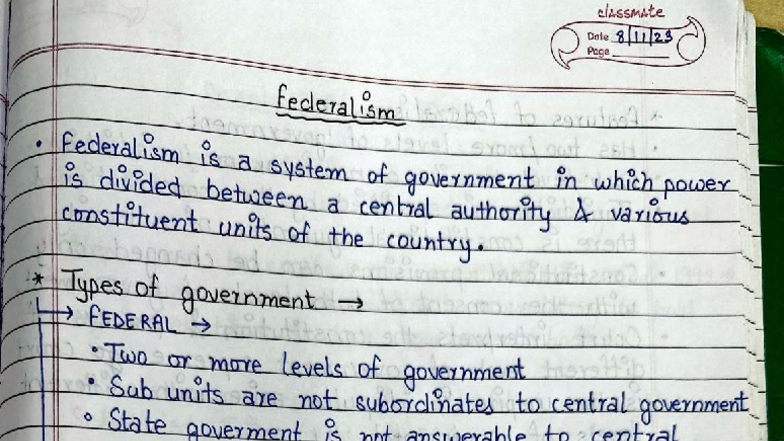 classmate
Date 8/11/23
Page
Federalism
• Federalism is a system of government in which power
is divided between a central authority & various
constituent units of the country.
* Types of government →
→ FEDERAL →
• Two or more levels of government
• Sub units are not subordinates to central government
• State goverment is not answerable to central